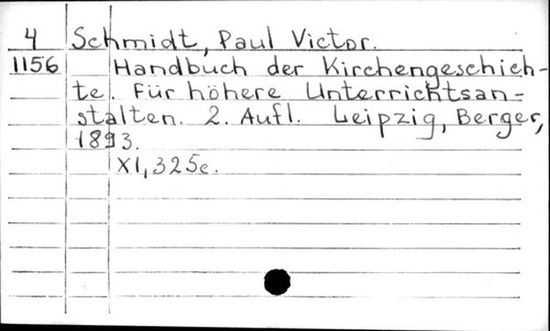 4 Schmidt, Paul Victor.
1156 Handbuch der Kirchengeschich-
te. Für höhere Unterrichtsan=
stalten. 2. Aufl. Leipzig, Berger,
1893.
XI, 325c.